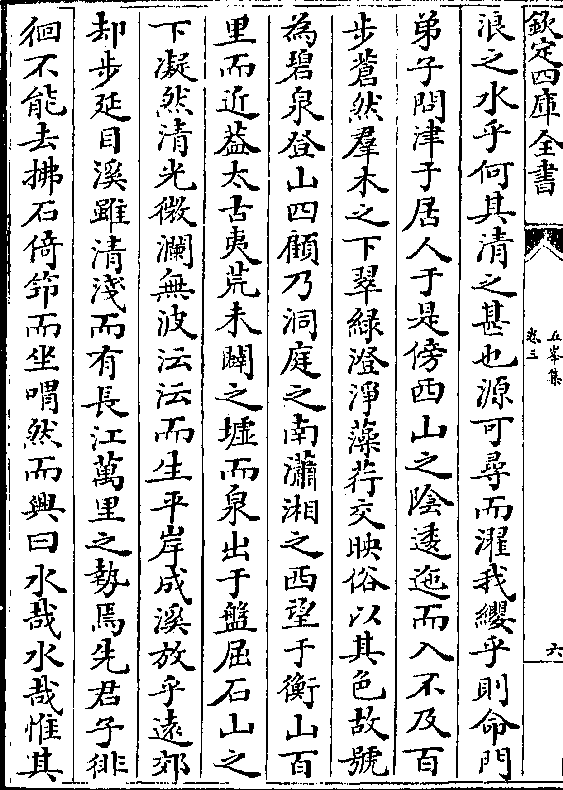 欽定四庫全書
五峯集
卷三
六
浪之水乎何其清之甚也源可尋而濯我纓乎則命門
弟子問津于居人于是傍西山之陰逶迤而入不及百
步蒼然羣木之下翠綠澄淨藻荇交映俗以其色故號
為碧泉登山四顧乃洞庭之南瀟湘之西望于衡山百
里而近葢太古夷荒未闢之墟而泉出于盤屈石山之
下凝然清光微瀾無波沄沄而生平岸成溪放乎遠郊
却步延目溪雖清淺而有長江萬里之勢焉先君子徘
徊不能去拂石倚筇而坐喟然而興曰水哉水哉惟其